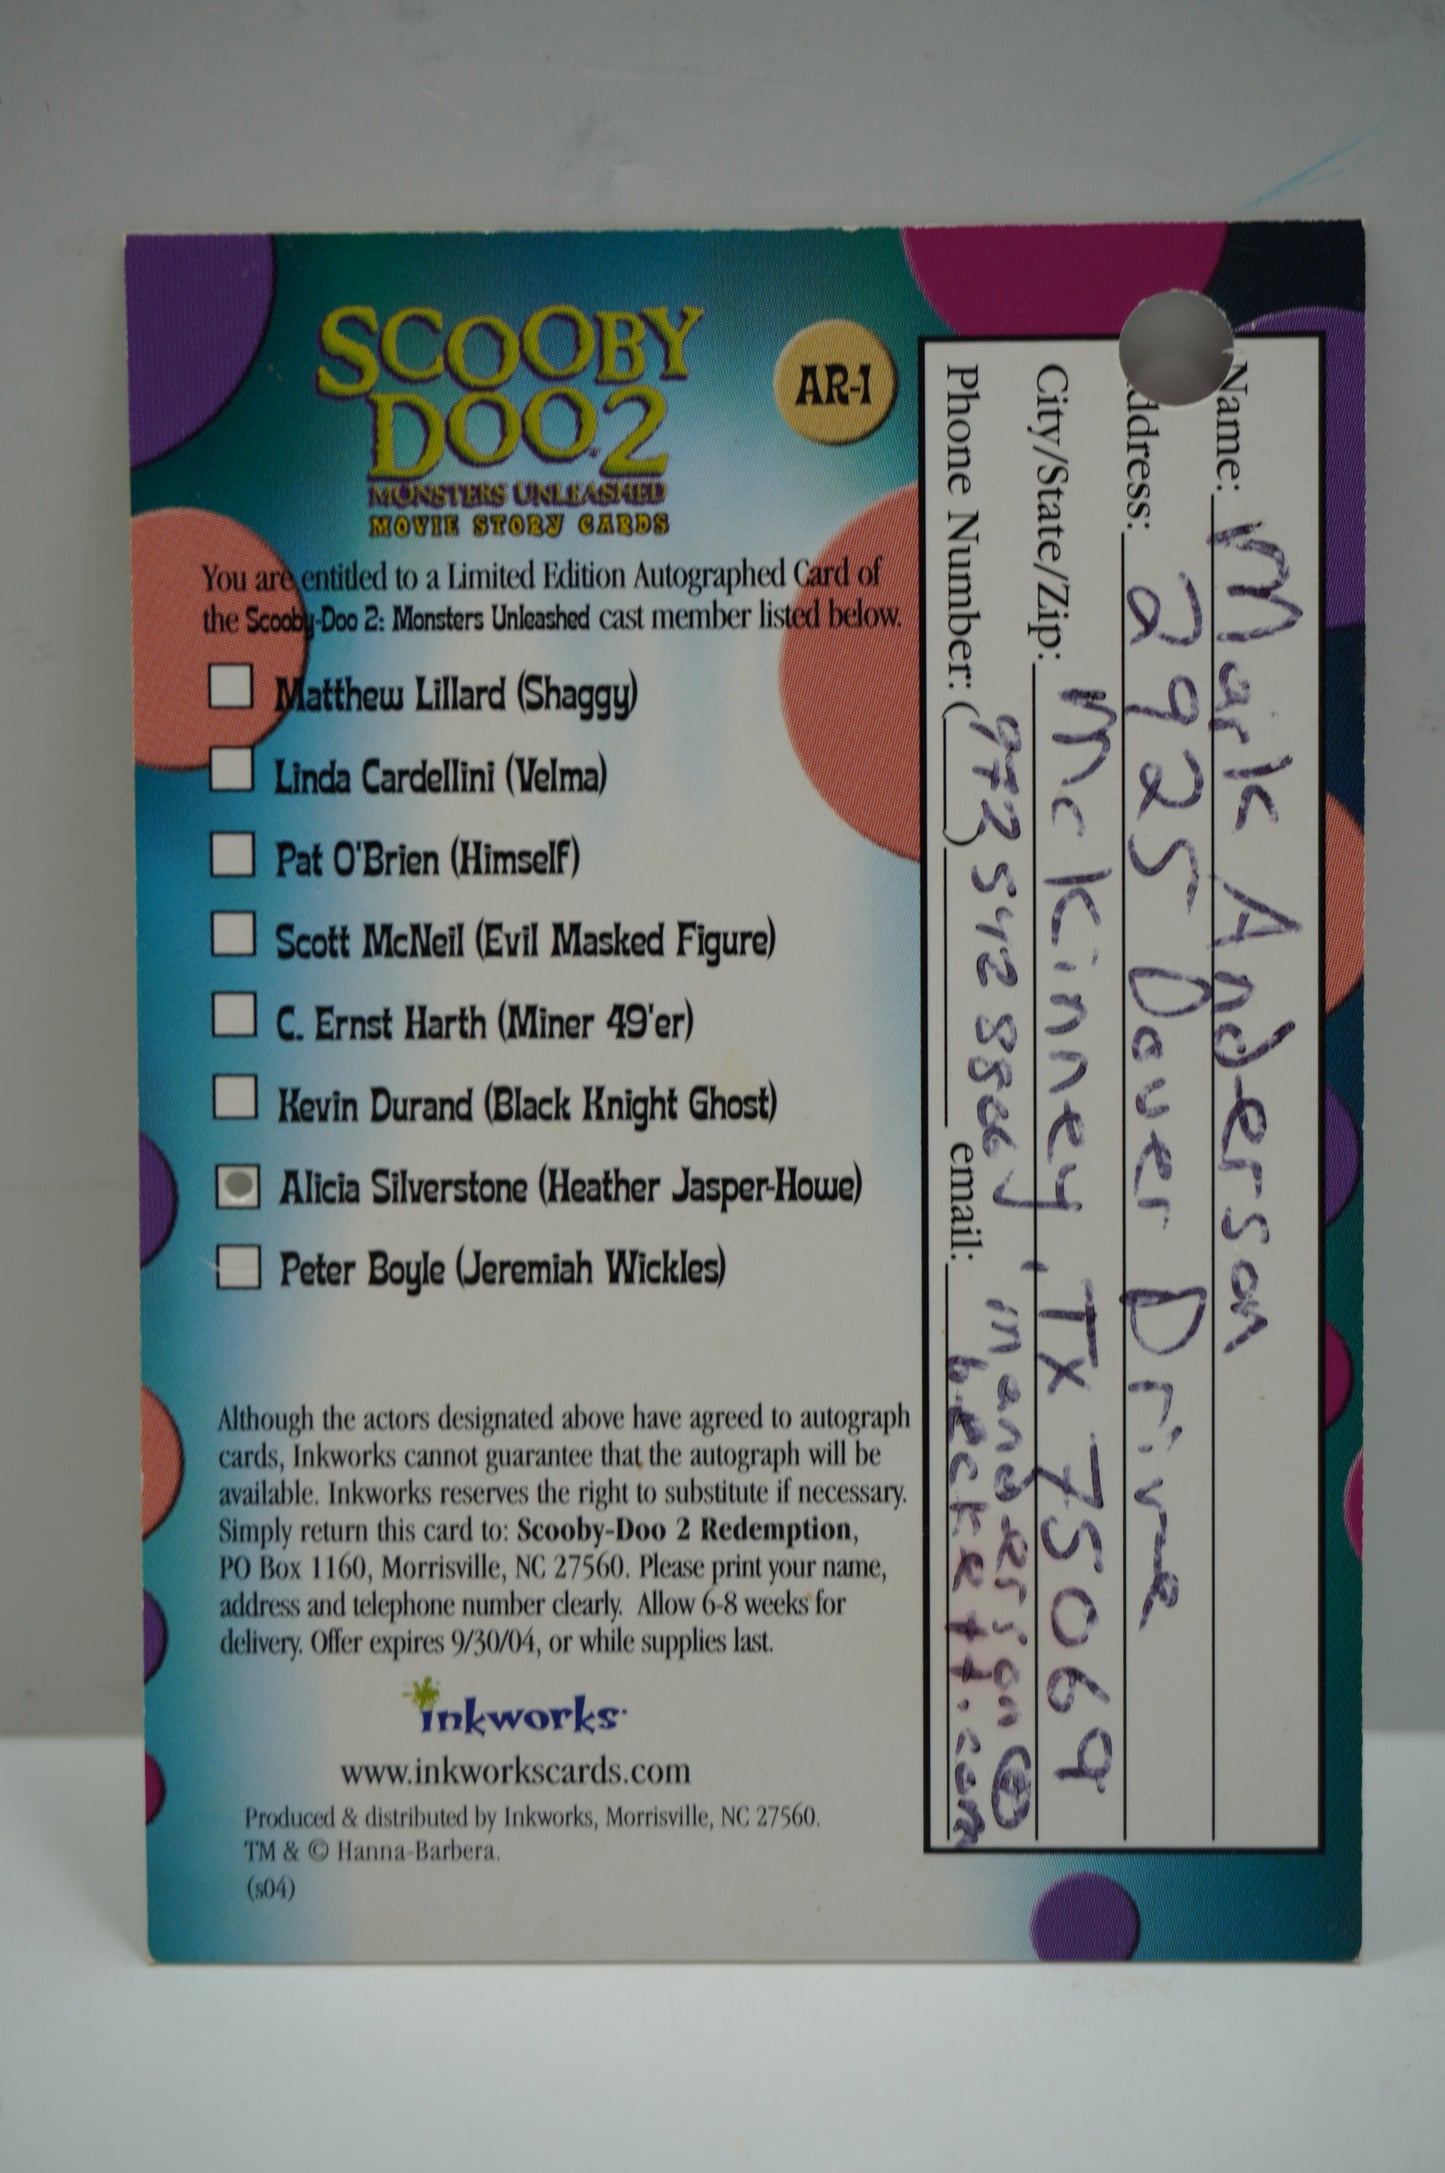 SCOOBY
DOO 2
MONSTERS UNLEASHED
MOVIE STORY CARDS
AR-1
You are entitled to a Limited Edition Autographed Card of
the Scooby-Doo 2: Monsters Unleashed cast member listed below.
Matthew Lillard (Shaggy)
Linda Cardellini (Velma)
Pat O'Brien (Himself)
Scott McNeil (Evil Masked Figure)
C. Ernst Harth (Miner 49'er)
Kevin Durand (Black Knight Ghost)
Alicia Silverstone (Heather Jasper-Howe)
Peter Boyle (Jeremiah Wickles)
Although the actors designated above have agreed to autograph
cards, Inkworks cannot guarantee that the autograph will be
available. Inkworks reserves the right to substitute if necessary.
Simply return this card to: Scooby-Doo 2 Redemption,
PO Box 1160, Morrisville, NC 27560. Please print your name,
address and telephone number clearly. Allow 6-8 weeks for
delivery. Offer expires 9/30/04, or while supplies last.
inkworks
www.inkworkscards.com
Produced & distributed by Inkworks, Morrisville, NC 27560.
TM & © Hanna-Barbera.
(s04)
Name: Mark Anderson
ddress: 2925 Dover Drive
City/State/Zip: McKinney, TX 75069
Phone Number: (972) 542 8866 email: manderson@
beckett.com